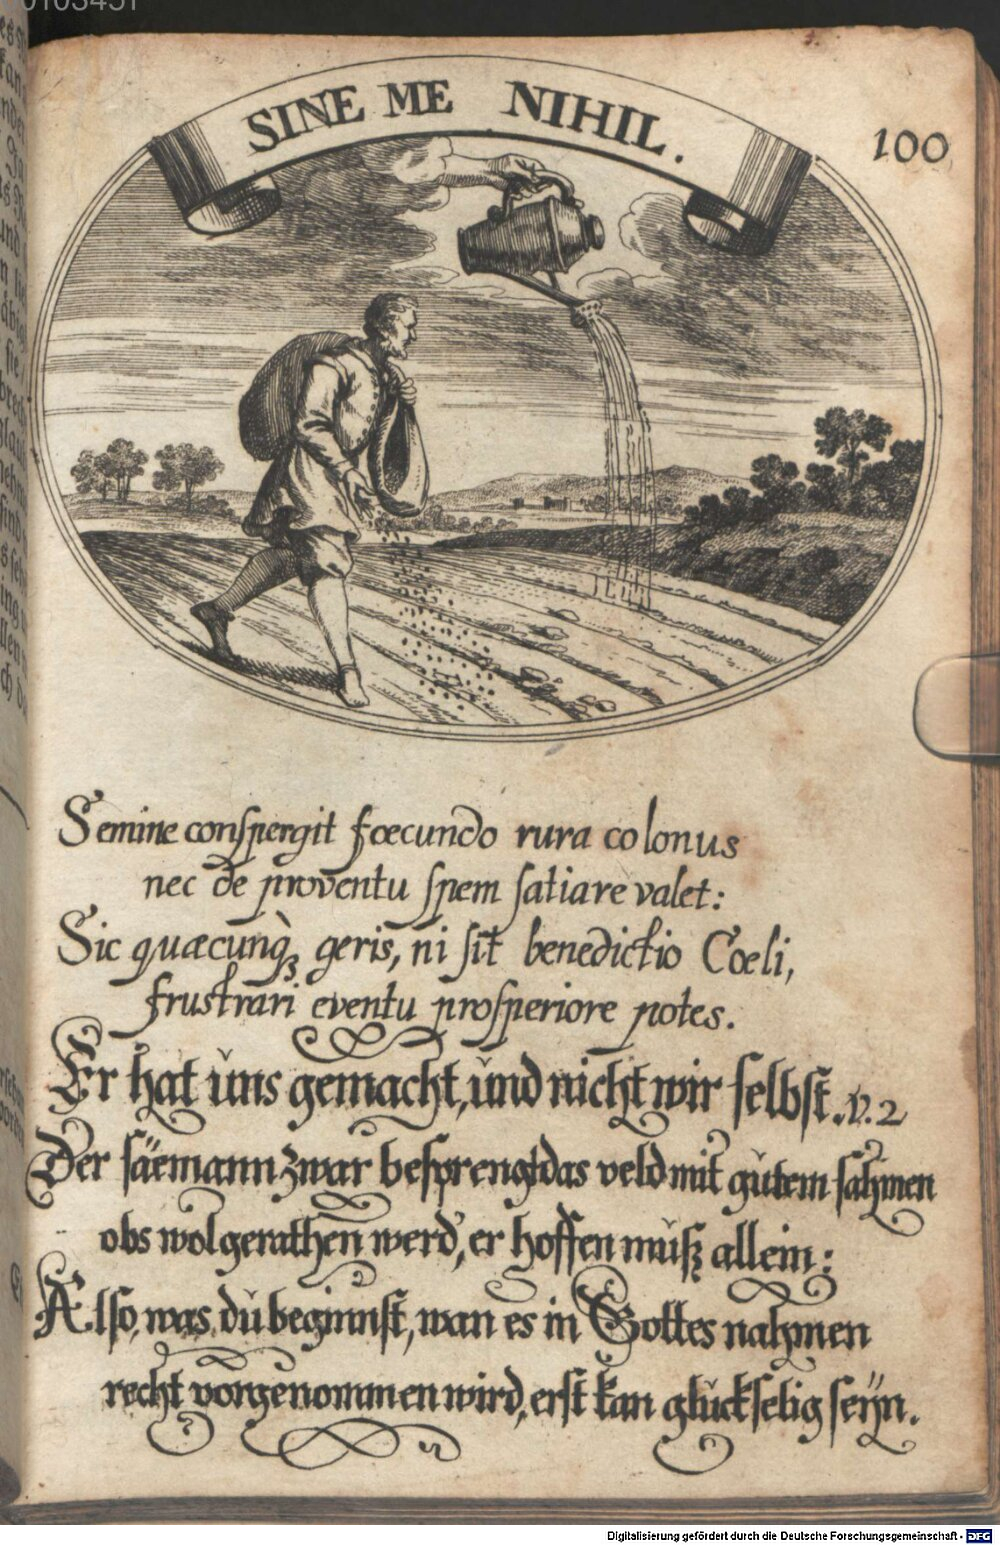 SINE ME NIHIL.
100
Semine conſpergit fœcundo rura colonus
nec de proventu ſpem ſatiare valet:
Sic quæcunqꝫ geris, ni ſit benedictio Cœli,
fruſtrari eventu proſperiore potes.
Er hat uns gemacht, und nicht wir ſelbſt. v. 2
Der ſäemann zwar beſprengt das veld mit gutem ſahmen
obs wol gerathen werd, er hoffen muſz allein:
Alſo, was du beginnſt, wan es in Gottes nahmen
recht vorgenommen wird, erſt kan gluckſelig ſeÿn.
Digitalisierung gefördert durch die Deutsche Forschungsgemeinschaft - DFG